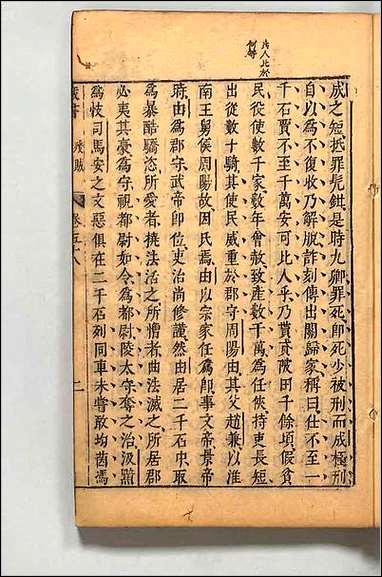 成之短抵罪髡鉗是時九卿罪死即死少被刑而成極刑
自以為不復收乃解脫詐刻傳出關歸家稱曰仕不至二
千石賈不至千萬安可比人乎乃貰貣陂田千餘頃假貧
民役使數千家數年會赦致產數千萬為任俠持吏長短
出從數十騎其使民威重於郡守周陽由其父趙兼以淮
南王舅侯周陽故因氏焉由以宗家任為郎事文帝景帝
時由為郡守武帝即位吏治尚修謹然由居二千石中最
為暴酷驕恣所愛者撓法活之所憎者曲法滅之所居郡
必夷其豪為守視都尉如令為都尉陵太守奪之治汲黯
為忮司馬安之文惡俱在二千石列同車未嘗敢均茵馮
藏書 賊 卷五十八 二